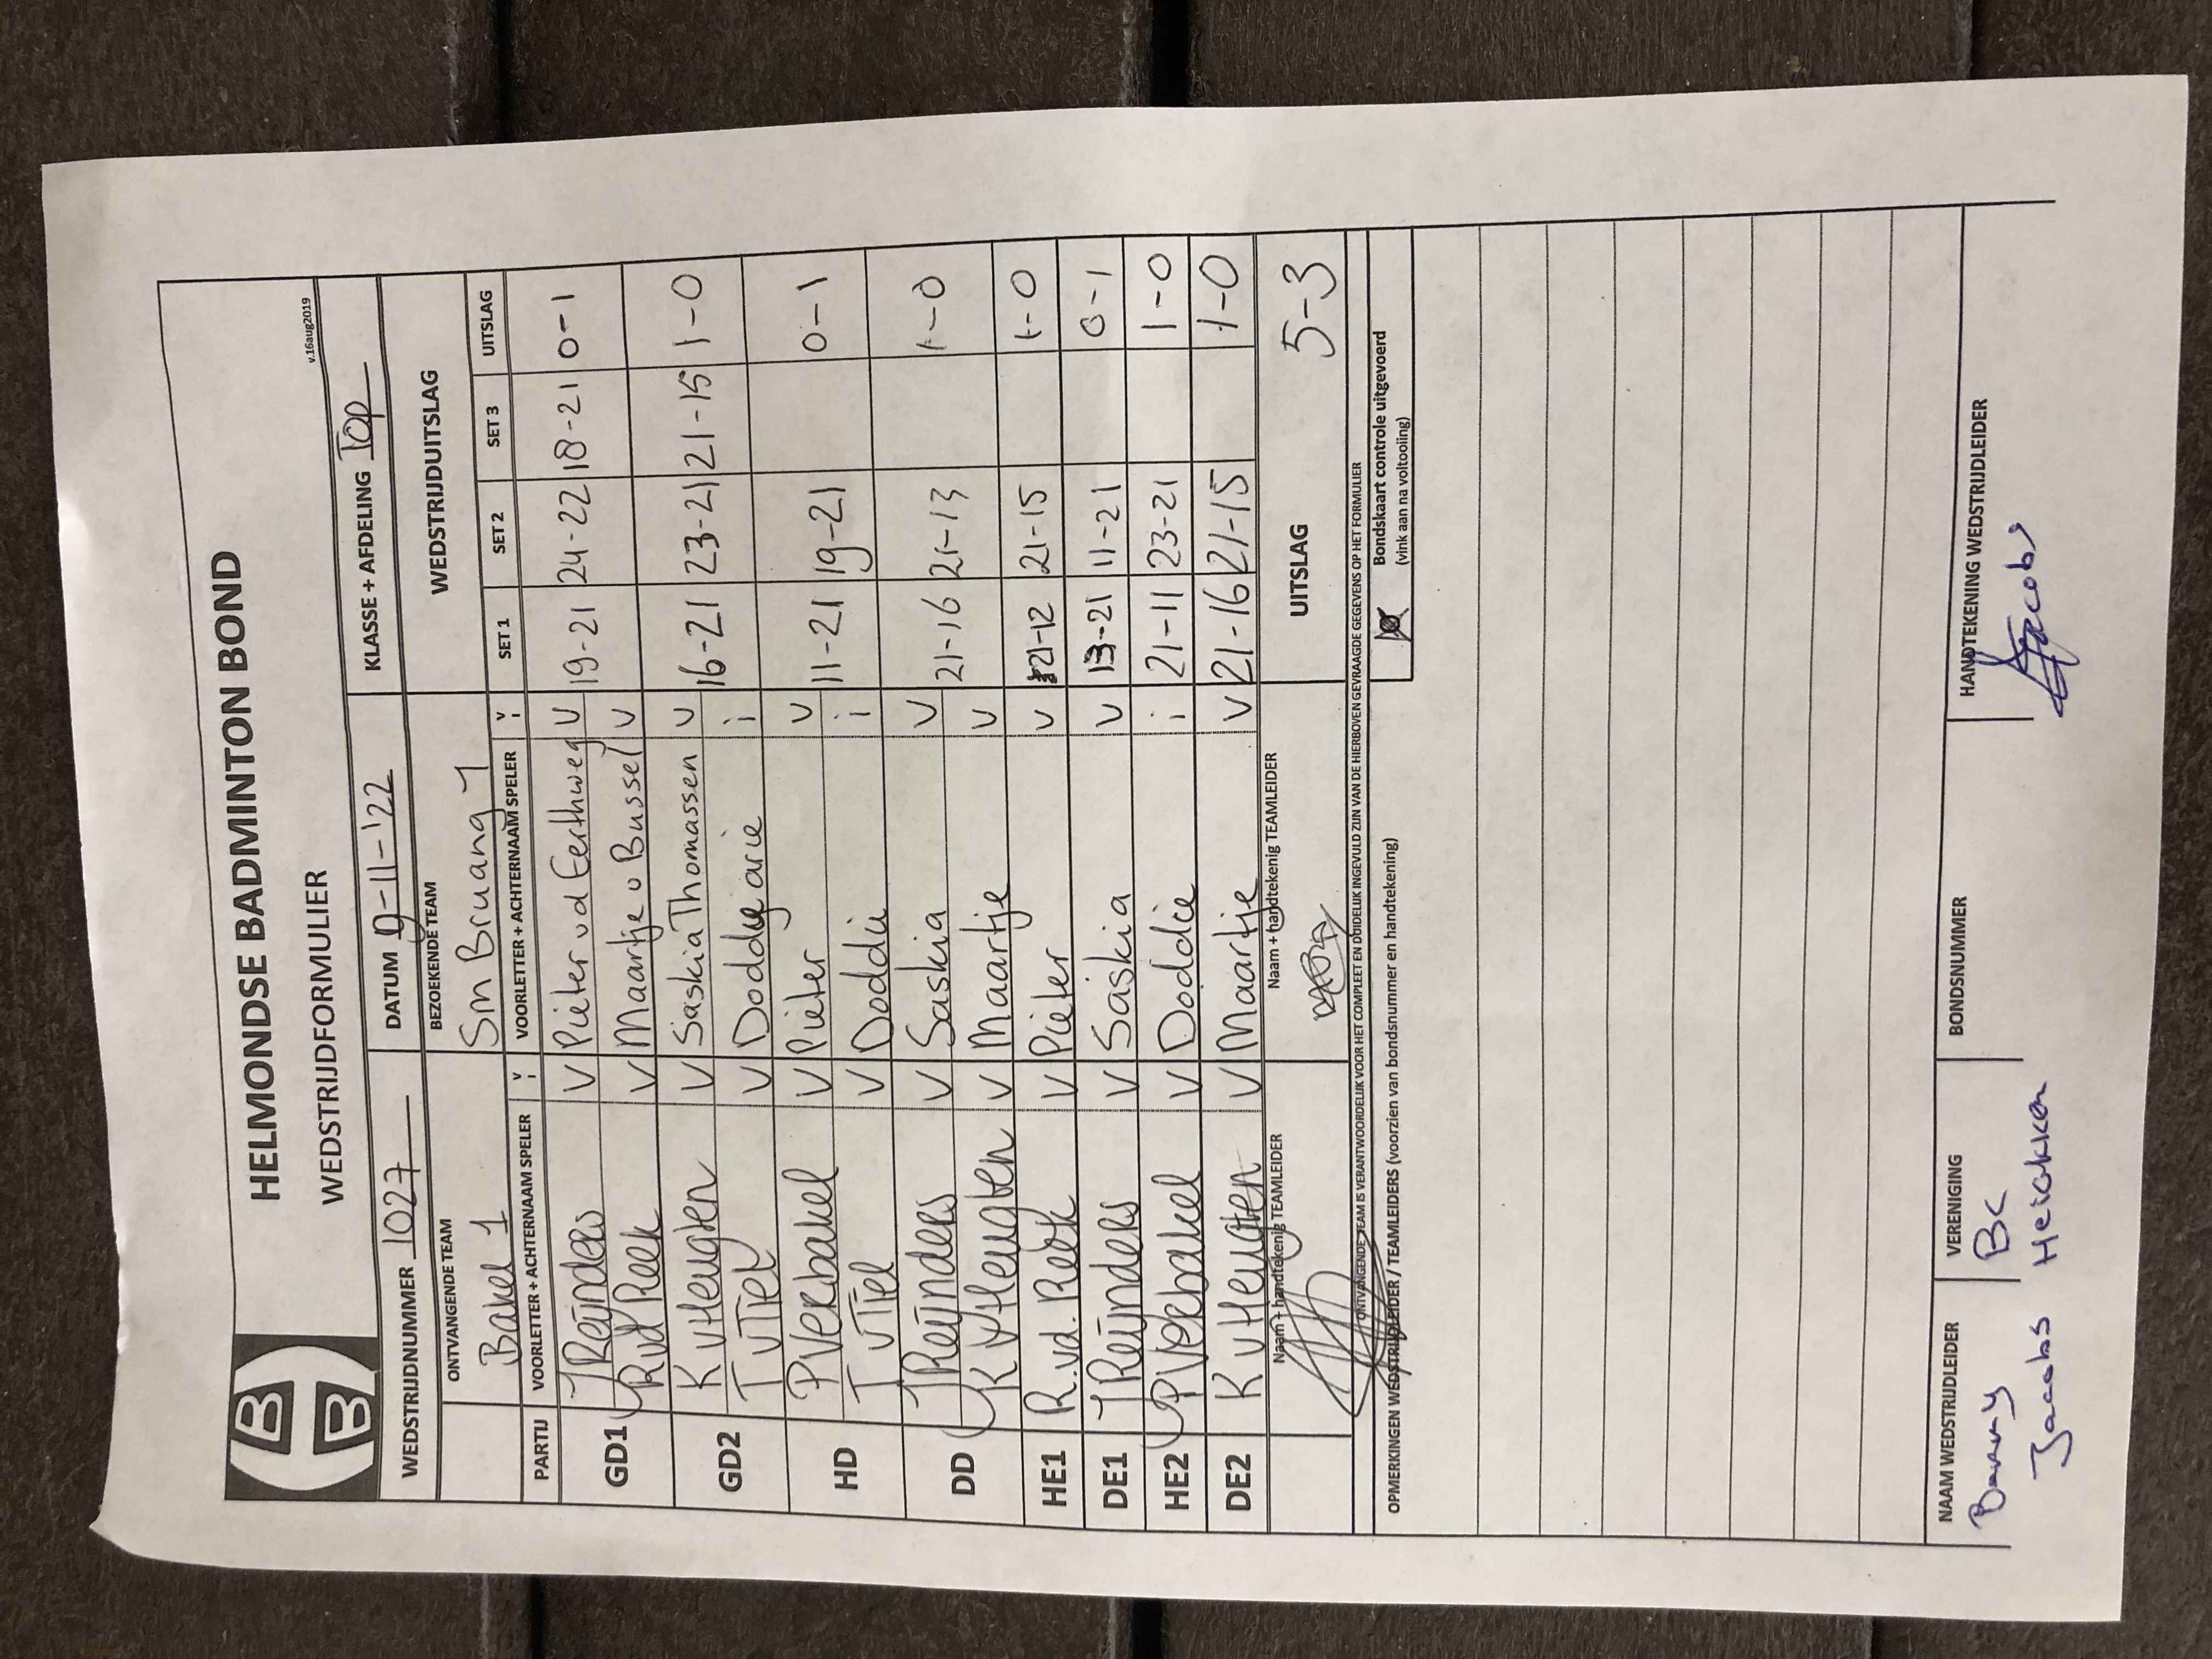 HELMONDSE BADMINTON BOND
WEDSTRIJDFORMULIER
v.16aug2019
WEDSTRIJDNUMMER 1027 DATUM 9-11-'22 KLASSE + AFDELING Top
ONTVANGENDE TEAM BEZOEKENDE TEAM WEDSTRIJDUITSLAG
Bakel 1 Sm Bruang 1
PARTIJ VOORLETTER + ACHTERNAAM SPELER V I VOORLETTER + ACHTERNAAM SPELER V I SET 1 SET 2 SET 3 UITSLAG
GD1 J Reijnders V Pieter v d Eerthweg V 19-21 24-22 18-21 0-1
R vd Reek V Maartje v Bussel V
GD2 K v Heugten V Saskia Thomassen V 16-21 23-21 21-15 1-0
T v Tiel V Doddy arie i
HD P Verbakel V Pieter V 11-21 19-21 0-1
T v Tiel V Doddi i
DD J Reijnders V Saskia V 21-16 21-13 1-0
K v Heugten V Maartje V
HE1 R. vd. Reek V Pieter V 21-12 21-15 1-0
DE1 J Reijnders V Saskia V 13-21 11-21 0-1
HE2 P Verbakel V Doddie i 21-11 23-21 1-0
DE2 K v Heugten V Maartje V 21-16 21-15 1-0
Naam + handtekenig TEAMLEIDER Naam + handtekenig TEAMLEIDER UITSLAG 5-3
ONTVANGENDE TEAM IS VERANTWOORDELIJK VOOR HET COMPLEET EN DUIDELIJK INGEVULD ZIJN VAN DE HIERBOVEN GEVRAAGDE GEGEVENS OP HET FORMULIER
OPMERKINGEN WEDSTRIJDLEIDER / TEAMLEIDERS (voorzien van bondsnummer en handtekening)
Bondskaart controle uitgevoerd
(vink aan na voltooiing)
NAAM WEDSTRIJDLEIDER VERENIGING BONDSNUMMER HANDTEKENING WEDSTRIJDLEIDER
BC
Jacobs Jacobs